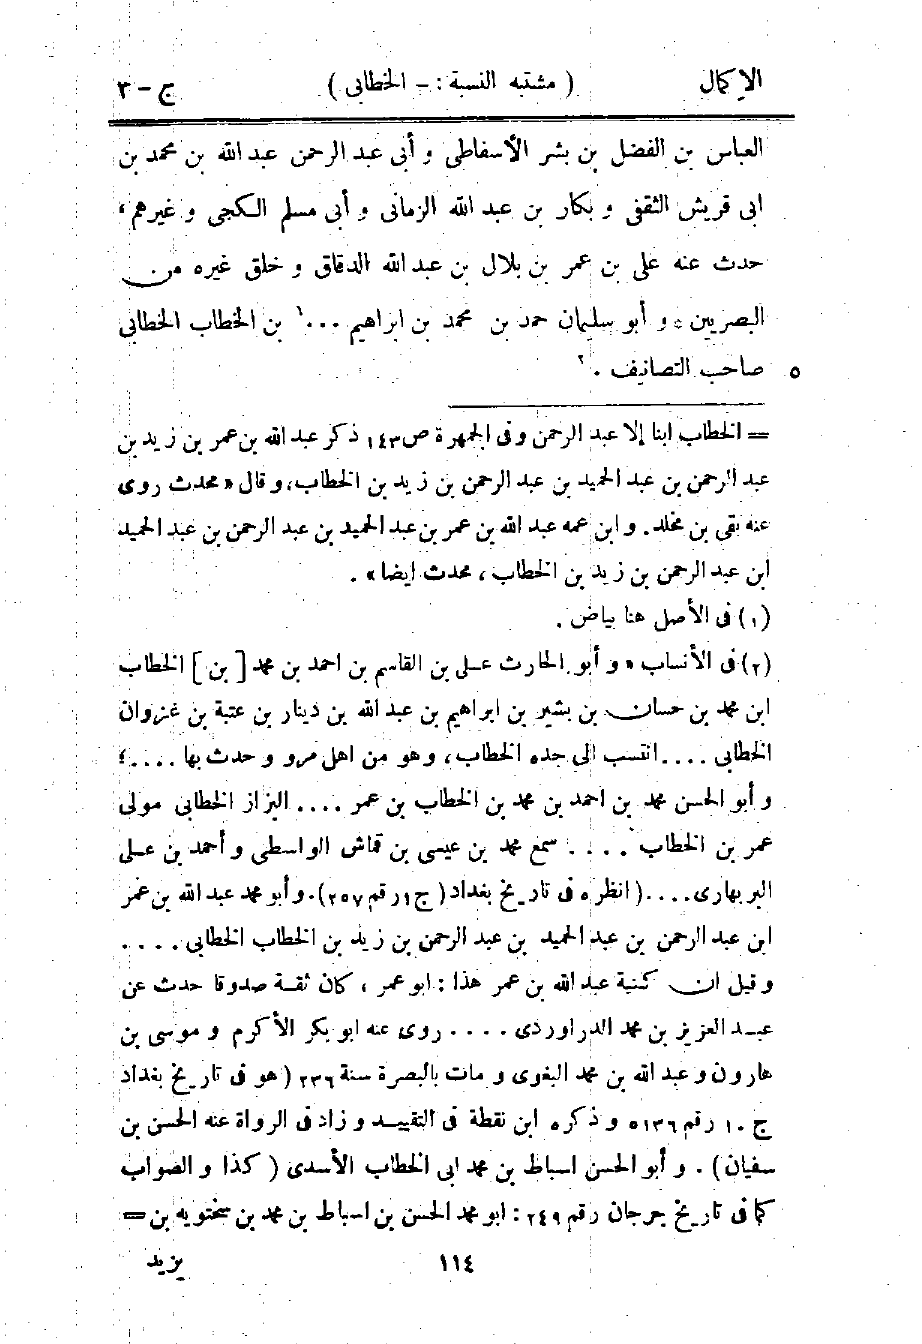 الإكمال ( مشتبه النسبة : - الخطابى ) ج - ٣
العباس بن الفضل بن بشر الأسفاطى و أبى عبد الرحمن عبد الله بن محمد بن
ابى قريش الثقفى و بكار بن عبد الله الزمانى و أبى مسلم الكجى و غيرهم ،
حدث عنه على بن عمر بن بلال بن عبد الله الدقاق و خلق غيره من
البصريين ٥ و أبو سليمان حمد بن محمد بن ابراهيم ...١ بن الخطاب الخطابى
صاحب التصانيف .٢ ٥
= الخطاب ابنا إلا عبد الرحمن وفى الجمهرة ص١٤٣ ذكر عبد الله بن عمر بن زيد بن
عبد الرحمن بن عبد الحميد بن عبد الرحمن بن زيد بن الخطاب، و قال « محدث روى
عنه بقى بن مخلد. و ابن عمه عبد الله بن عمر بن عبد الحميد بن عبد الرحمن بن عبد الحميد
ابن عبد الرحمن بن زيد بن الخطاب ، محدث ايضا » .
(١) فى الأصل هنا بياض .
(٢) فى الأنساب « و أبو الحارث على بن القاسم بن احمد بن محمد [ بن ] الخطاب
ابن محمد بن حسان بن بشير بن ابراهيم بن عبد الله بن دينار بن عتبة بن غزوان
الخطابى .... انتسب الى جده الخطاب ، و هو من اهل مرو و حدث بها .... ؛
و أبو الحسن محمد بن احمد بن محمد بن الخطاب بن عمر .... البزاز الخطابى مولى
عمر بن الخطاب .... سمع محمد بن عيسى بن قماش الواسطى و أحمد بن على
البربهارى .... ( انظره فى تاريخ بغداد ( ج ١ رقم ٢٥٧ ). و أبو محمد عبد الله بن عمر
ابن عبد الرحمن بن عبد الحميد بن عبد الرحمن بن زيد بن الخطاب الخطابى ....
و قيل ان كنية عبد الله بن عمر هذا : ابو عمر ، كان ثقة صدوقا حدث عن
عبد العزيز بن محمد الدراوردى .... روى عنه ابو بكر الأكرم و موسى بن
هارون و عبد الله بن محمد البغوى و مات بالبصرة سنة ٢٣٦ ( هو فى تاريخ بغداد
ج ١٠ رقم ٥١٣٦ و ذكره ابن نقطة فى التقييد و زاد فى الرواة عنه الحسن بن
سفيان ) . و أبو الحسن اسباط بن محمد ابى الخطاب الأسدى ( كذا و الصواب
كما فى تاريخ جرجان رقم ٢٤٩ : ابو محمد الحسن بن اسباط بن محمد بن سختويه بن =
١١٤ يزيد